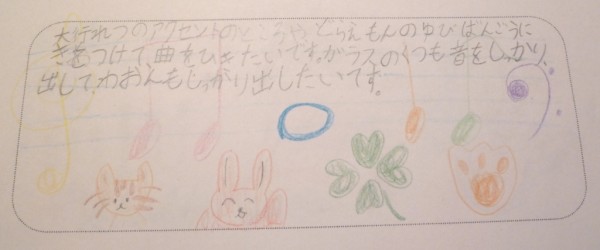 大行れつのアクセントのところや、どらえもんのゆびばんごうに
きをつけて、曲をひきたいです。ガラスのくつも音をしっかり、
出して、わおんもしっかり出したいです。